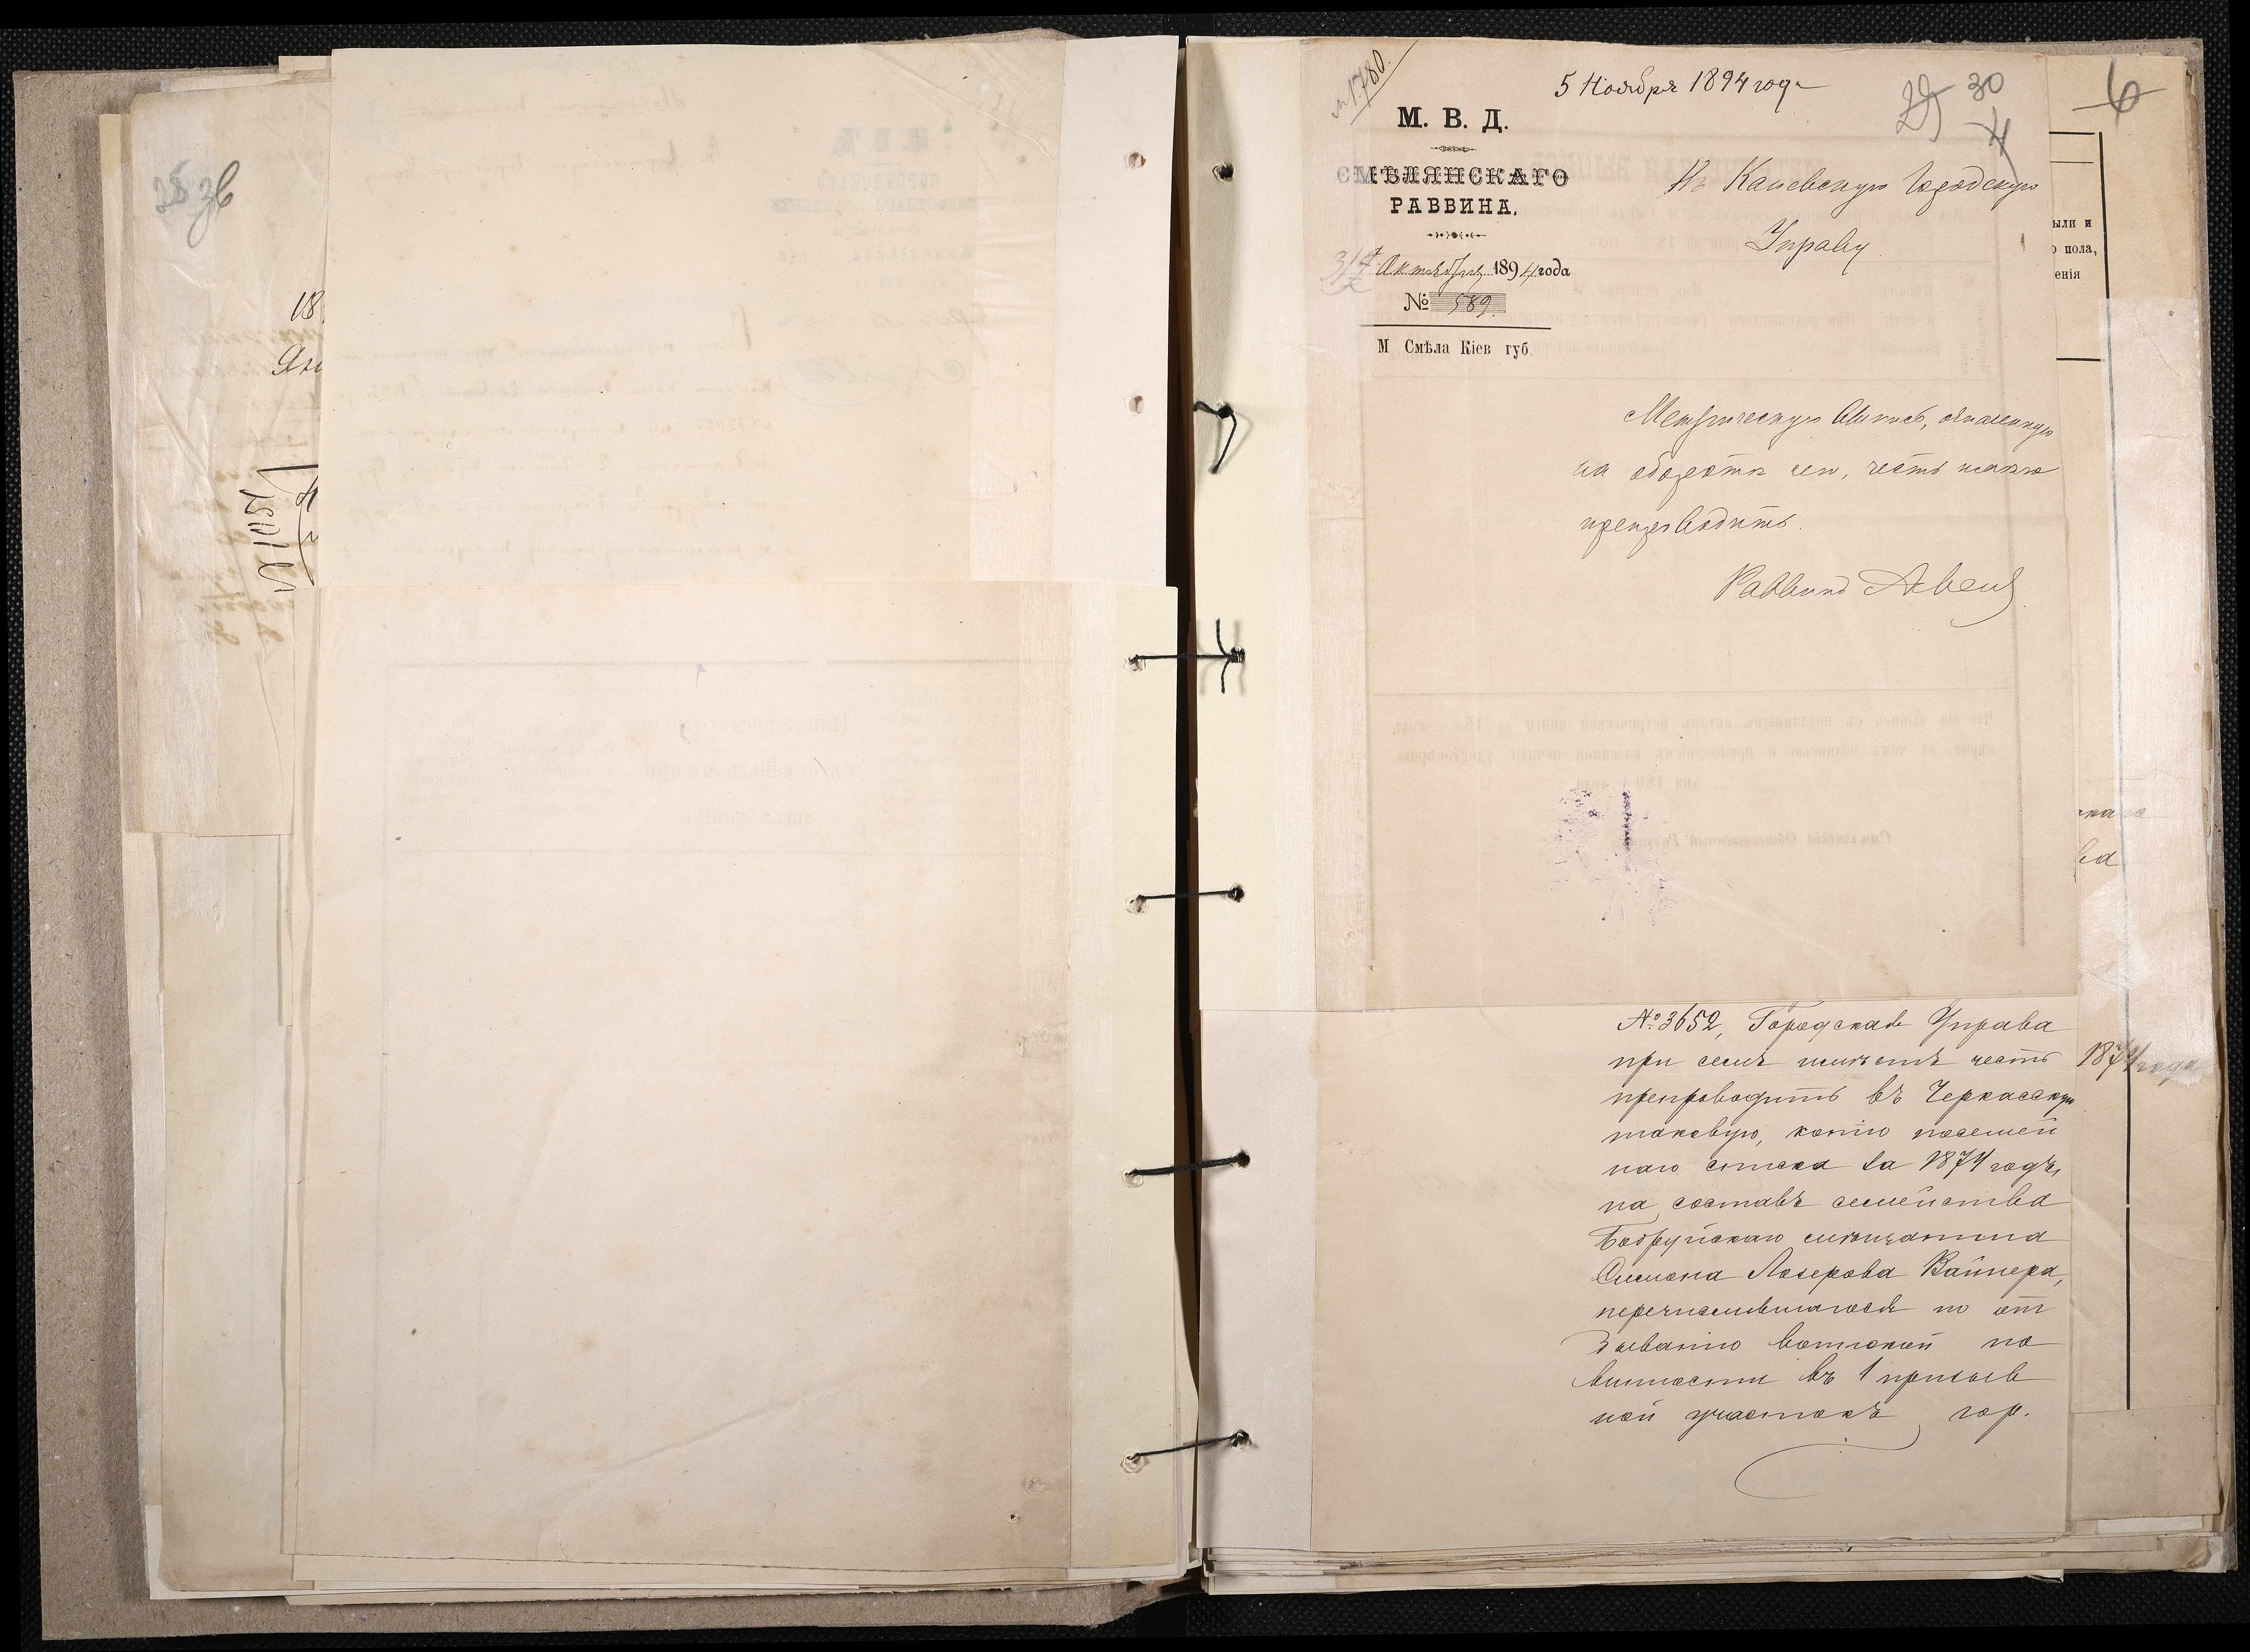 36
18
Ян
№1780.
5 Ноября 1894 года
29 30
4
6
М. В. Д.
СМѢЛЯНСКАГО
РАВВИНА.
31 Октября 1894 года
№ 589.
М Смѣла Кіев губ.
Въ Каневскую Городскую
Управу
Метрическую выпись,
на оборотѣ сего, честь имѣю
препроводить.
Раввинъ
ыли и
о пола,
енія
№ 3652, Городская Управа
при семъ имѣетъ честь
препроводить въ Черкасскую
таковую, копію посемей
наго списка за 1874 годъ,
на составъ семейства
Бобруйскаго мѣщанина
Симона Лозерова Вайнера,
перечислившагося по от
быванію воинской по
винности въ 1 призыв
ной участокъ гор.
1874 года